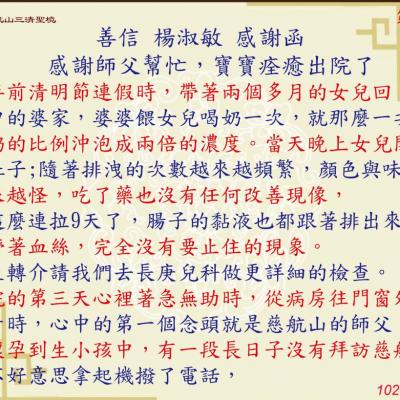 航山三清聖境
善信 楊淑敏 感謝函
感謝師父幫忙，寶寶痊癒出院了
年前清明節連假時，帶著兩個多月的女兒回
中的婆家，婆婆餵女兒喝奶一次，就那麼一
奶的比例沖泡成兩倍的濃度。當天晚上女兒
肚子;隨著排洩的次數越來越頻繁，顏色與味
越怪，吃了藥也沒有任何改善現像，
這麼連拉9天了，腸子的黏液也都跟著排出來
帶著血絲，完全沒有要止住的現象。
轉介請我們去長庚兒科做更詳細的檢查。
院的第三天心裡著急無助時，從病房往門窗外
時，心中的第一個念頭就是慈航山的師父
懷孕到生小孩中，有一段長日子沒有拜訪慈航
不好意思拿起機撥了電話，
102